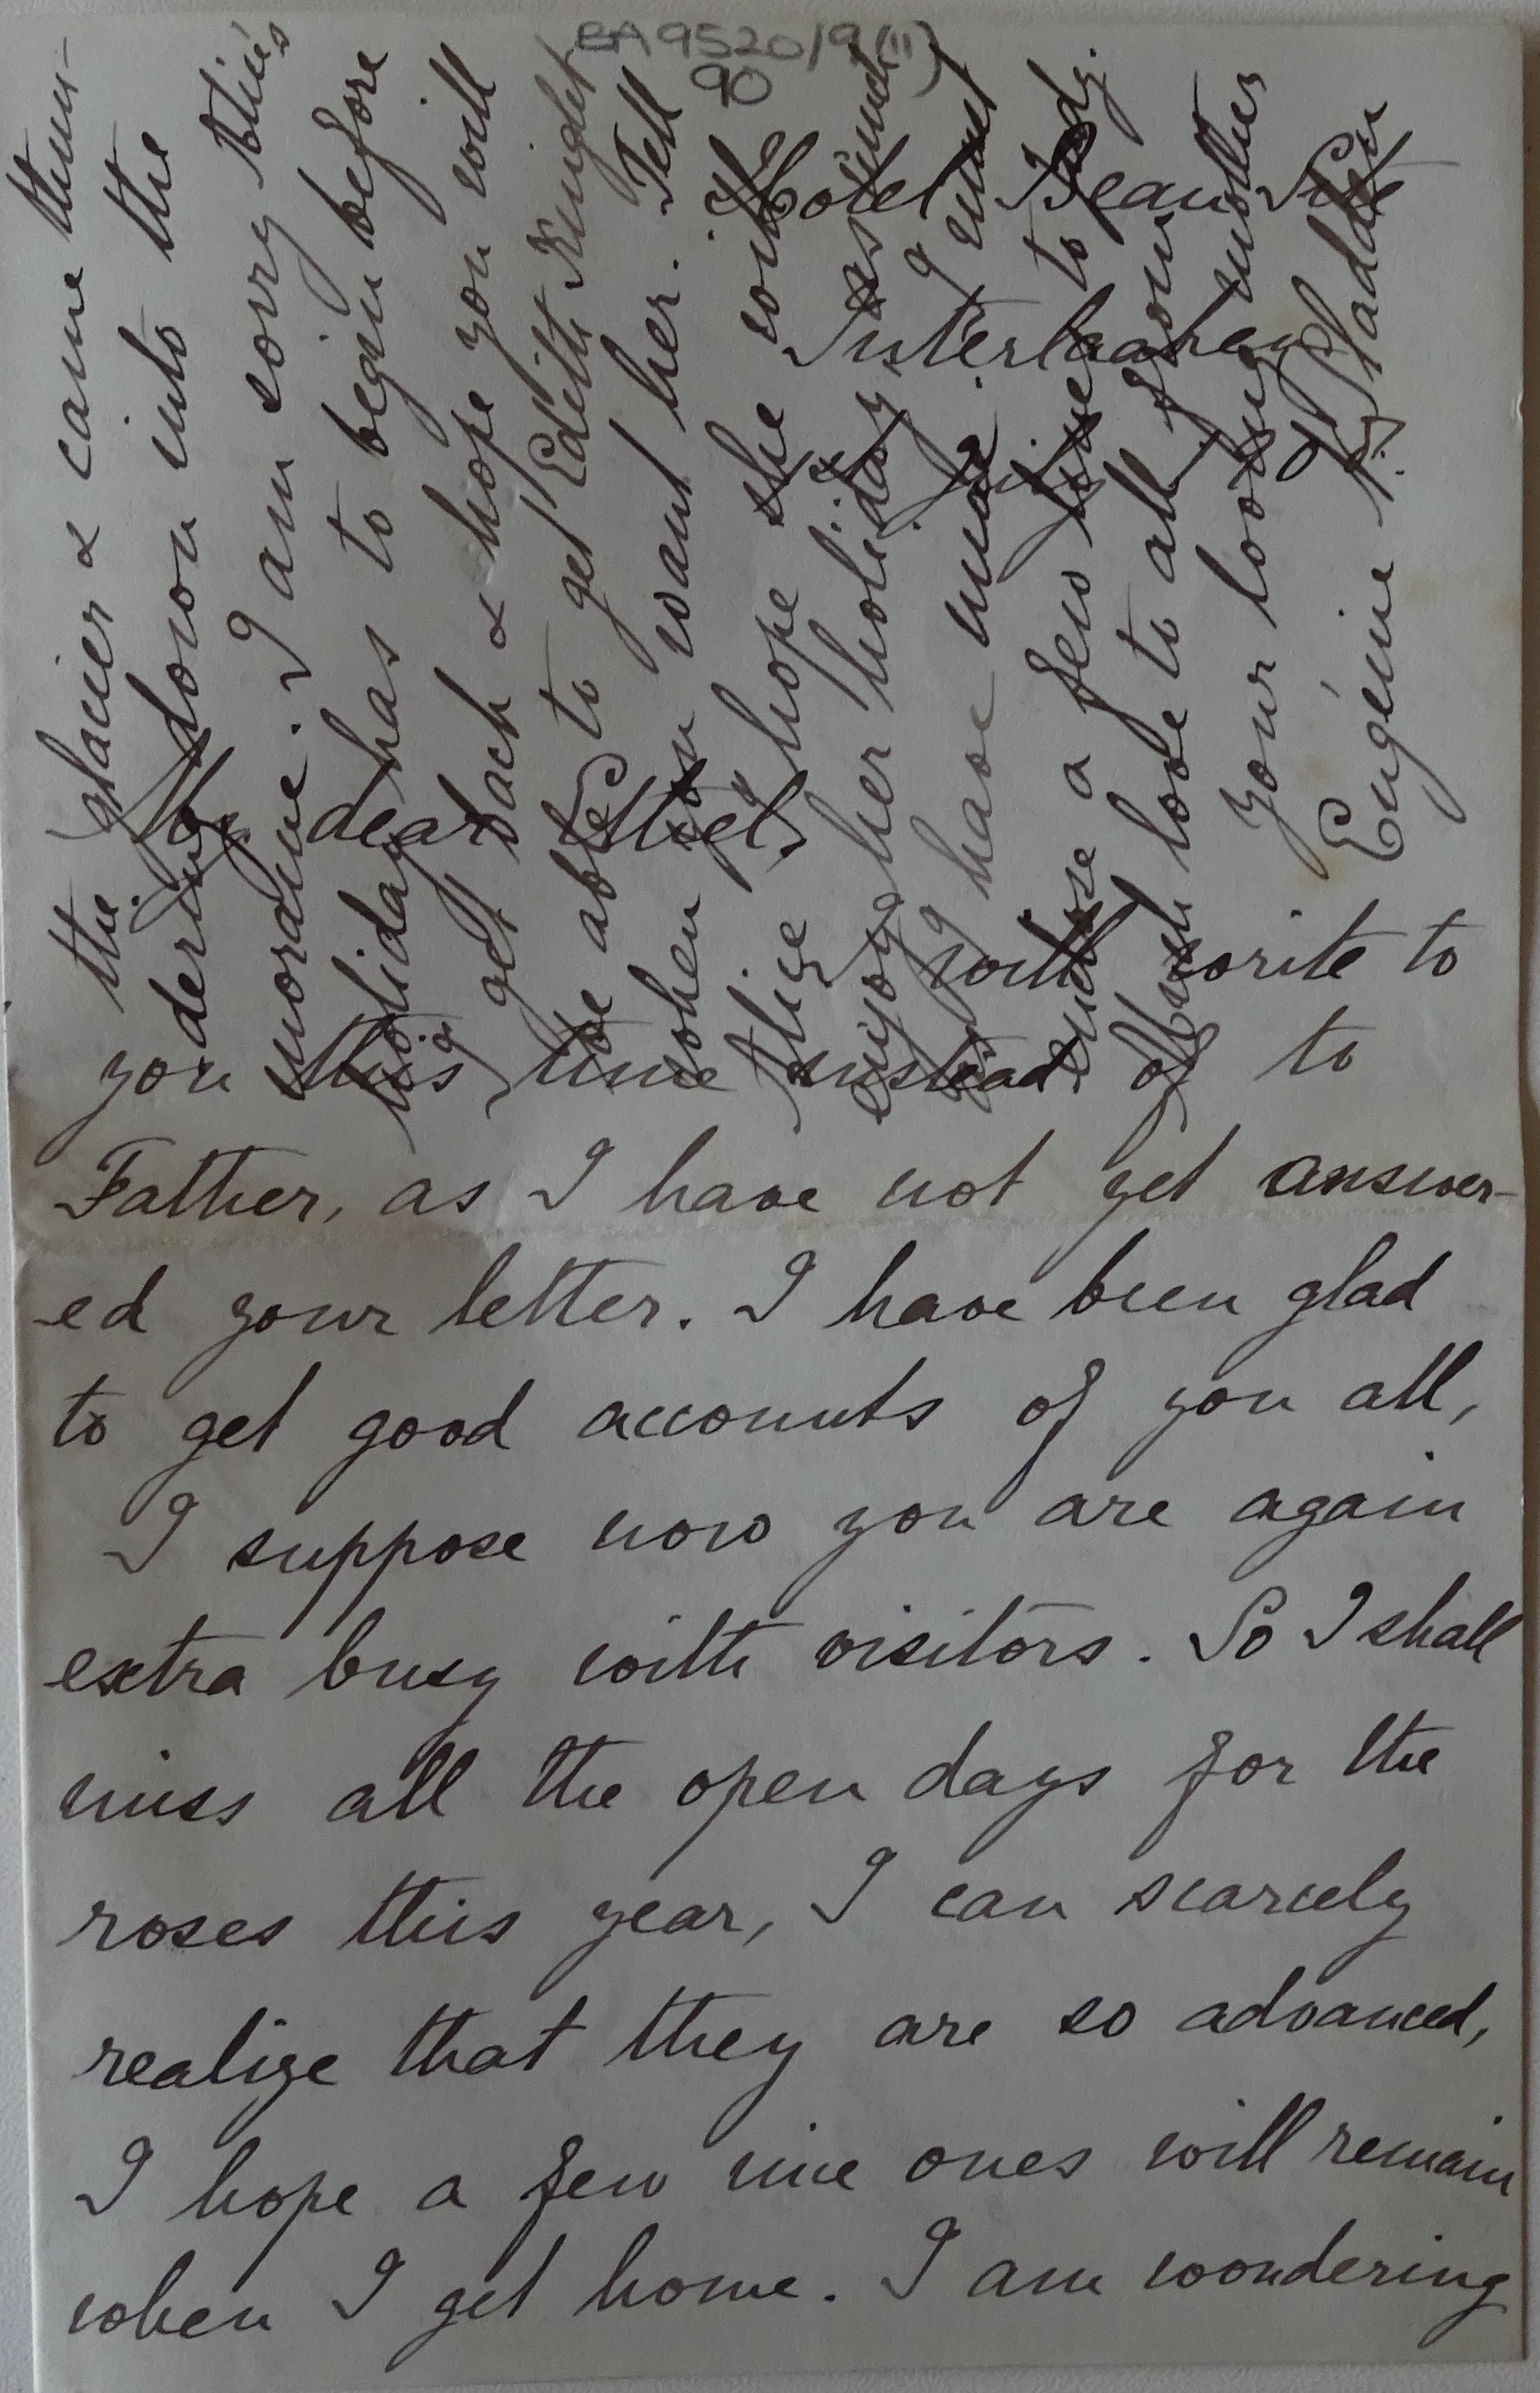 BA 9520/9(ii)
90
Hotel Beau Site
Interlaaken
July
My dear Ethel,
I will write to
you this time instead of to
Father, as I have not yet answer-
-ed your letter. I have been glad
to get good accounts of you all,
I suppose now you are again
extra busy with visitors. So I shall
miss all the open days for the
roses this year, I can scarcely
realize that they are so advanced,
I hope a few nice ones will remain
when I get home. I am wondering
the glacier & came thun-
dering down into the
moraine. I am sorry
holiday has to begin before
I get back & hope you will
be able to get Edith Knight
when you want her. Tell
Alice I hope she will
enjoy her holiday as much
as I have mine. I must
enclose a few lines to Judy.
Much love to all from
Your loving mother
Eugénie N. Sladden